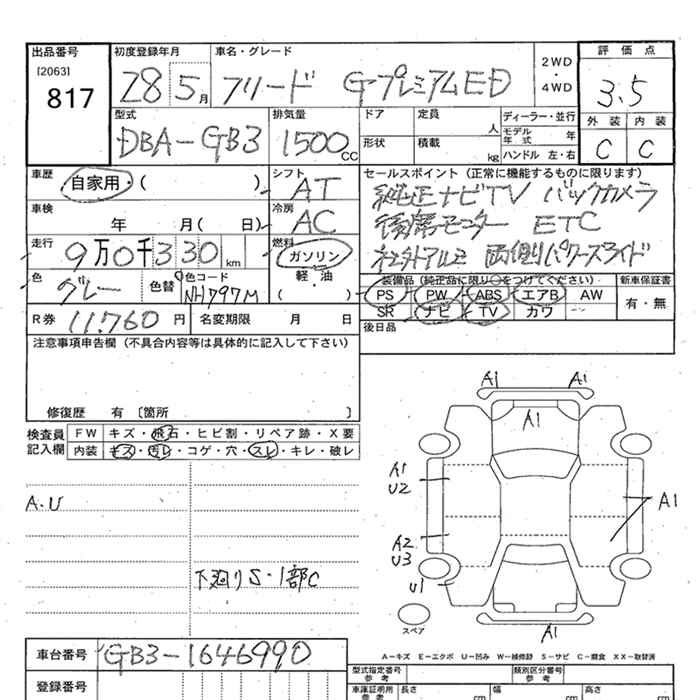 出品番号 初度登録年月 車名・グレード 2WD・4WD 評価点
[2063]
817 28 5月 フリード GプレミアムED 3.5
型式 排気量 ドア 定員 人 ディーラー・並行 外装 内装
DBA-GB3 1500cc 形状 積載 kg モデル年式 年 C C
ハンドル 左・右
車歴 自家用・( ) シフト AT セールスポイント (正常に機能するものに限ります)
純正ナビTV バックカメラ
車検 年 月( 日) 冷房 AC 後席モニター ETC
走行 9万0千330km 燃料 ガソリン 軽・油 社外アルミ 両側パワースライド
色 グレー 色替 色コード NH797M 装備品 (純正品に限り○をつけてください) 新車保証書
PS PW ABS エアB AW 有・無
SR ナビ TV カワ
R券 11.760円 名変期限 月 日 後日品
注意事項申告欄 (不具合内容等は具体的に記入して下さい)
修復歴 有 [箇所 ]
検査員記入欄 FW キズ・飛石・ヒビ割・リペア跡・X要
内装 キズ・汚レ・コゲ・穴・スレ・キレ・破レ
A.U
下廻りS・1部C
A1 A1
A1
A1
U2
A1
A2
U3
U1
A1
スペア
A-キズ E-エクボ U-凹み W-補修跡 S-サビ C-腐食 XX-取替済
車台番号 GB3-1646990
型式指定番号 参考 類別区分番号 参考
登録番号 車庫証明用 参考 長さ cm 幅 cm 高さ cm